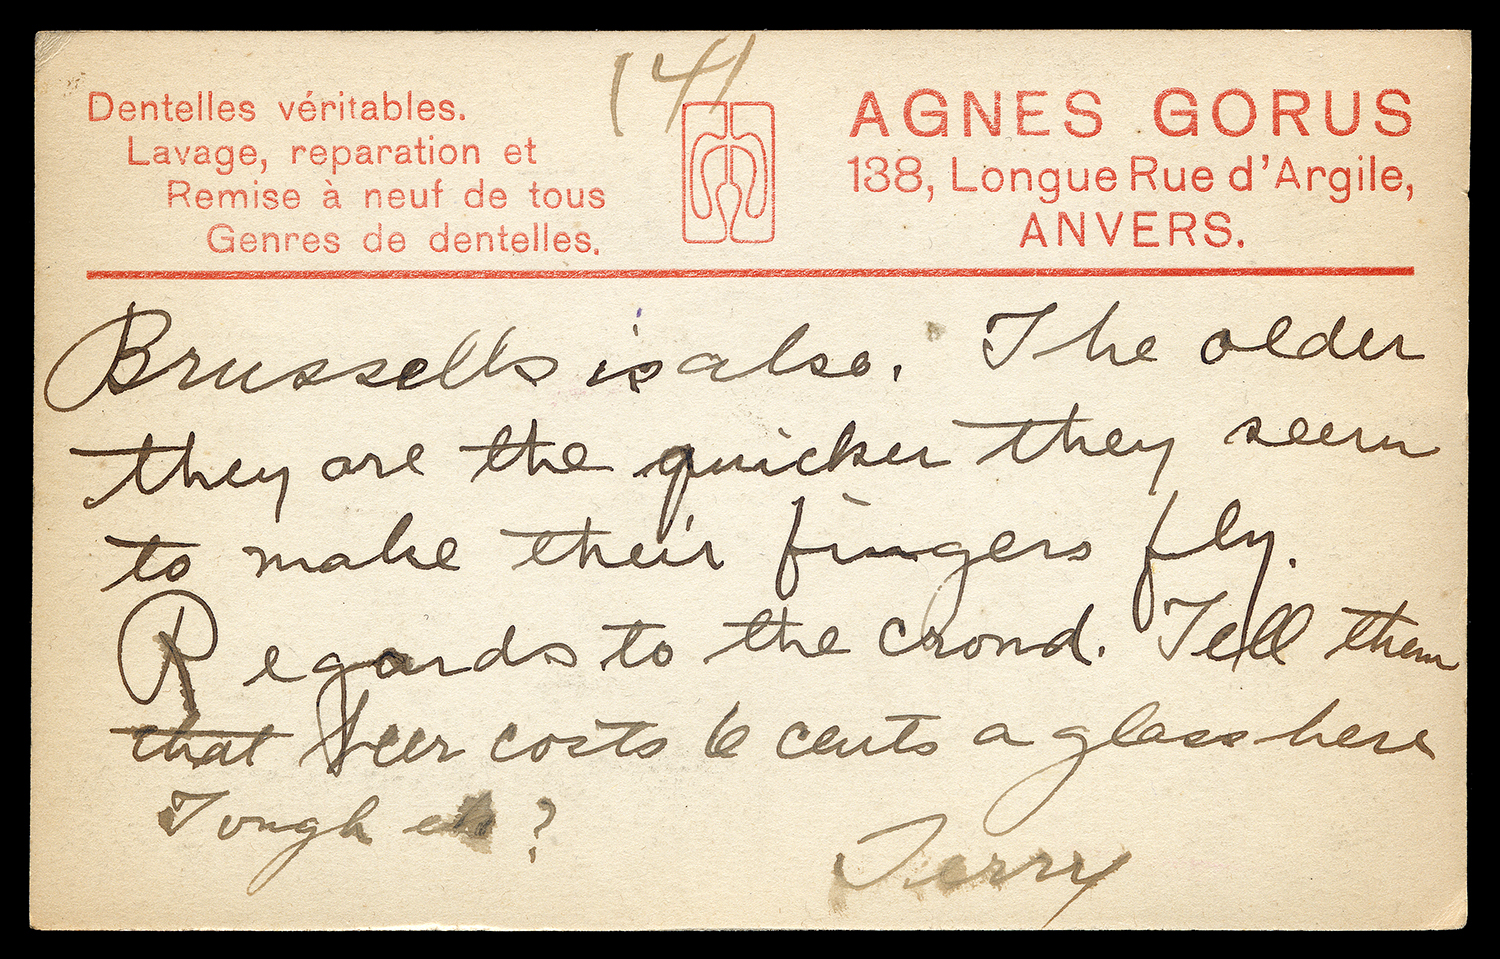 (4)
Dentelles véritables.
Lavage, reparation et
Remise à neuf de tous
Genres de dentelles.
AGNES GORUS
138, Longue Rue d'Argile,
ANVERS.
Brussells is also. The older
they are the quicker they seem
to make their fingers fly.
Regards to the crowd. Tell them
that beer costs 6 cents a glass here
Tough eh?
Terry